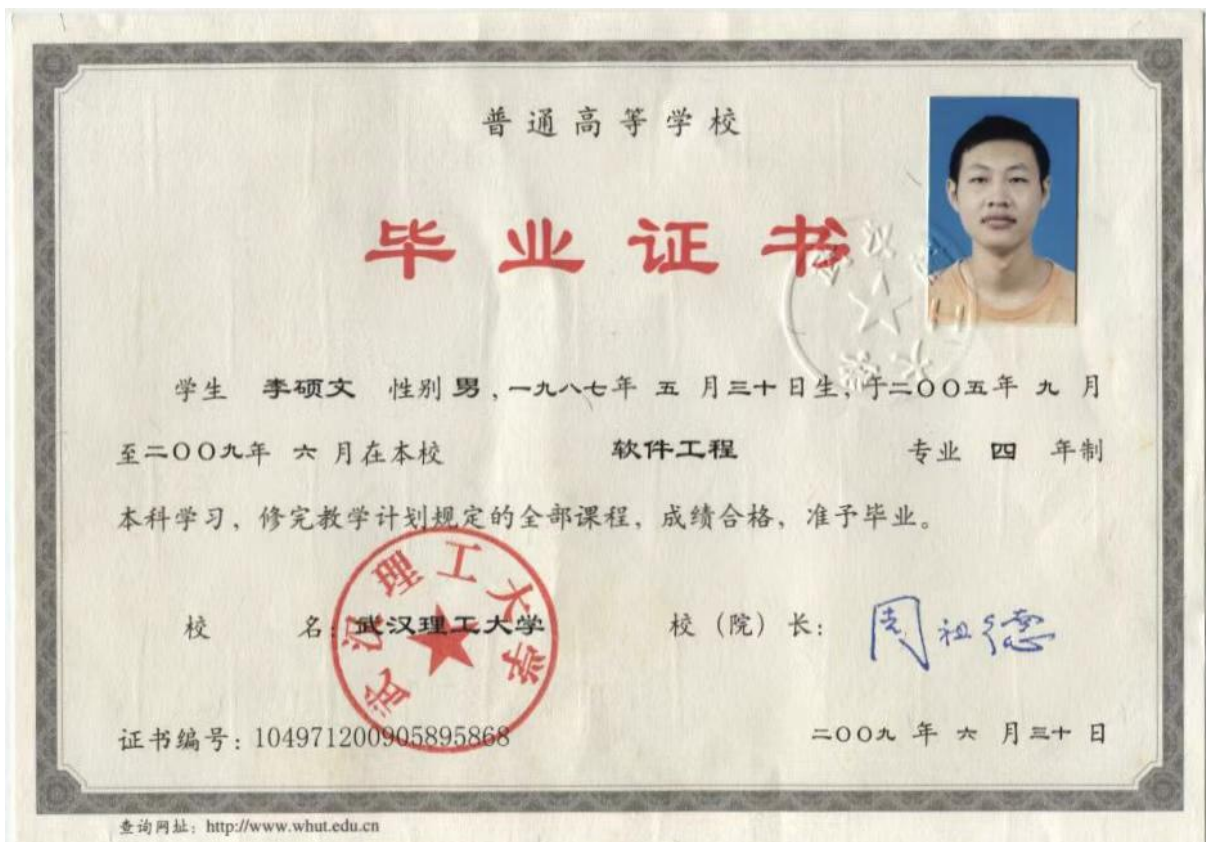 普通高等学校
毕业证书
学生 李硕文 性别 男，一九八七年 五 月三十日生，于二〇〇五年 九 月
至二〇〇九年 六 月在本校 软件工程 专业 四 年制
本科学习，修完教学计划规定的全部课程，成绩合格，准予毕业。
校 名：武汉理工大学 校（院）长：周祖德
武汉理工大学
证书编号：104971200905895868 二〇〇九 年 六 月三十日
查询网址：http://www.whut.edu.cn